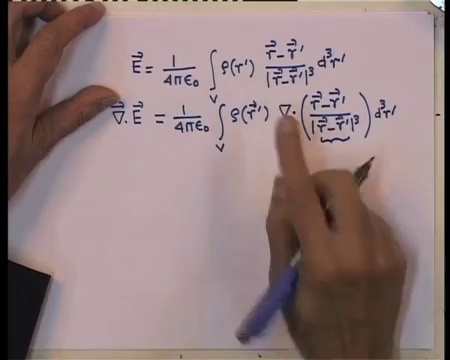 E⃗ = 1/4πε₀ ∫_V ρ(r') (r⃗ - r⃗')/|r⃗ - r⃗'|³ d³r'
∇⃗ · E⃗ = 1/4πε₀ ∫_V ρ(r⃗') ∇ · ((r⃗ - r⃗')/|r⃗ - r⃗'|³) d³r'